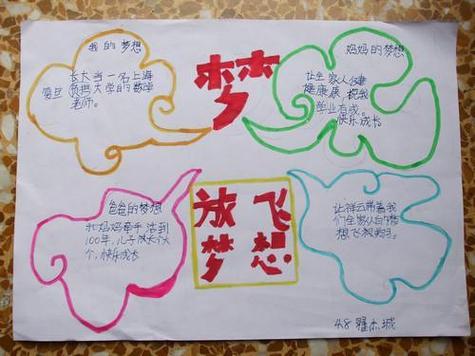 我的梦想
长大当一名上海
复旦负责大学的数学
老师。
梦
妈妈的梦想
让全家人健
健康康，祝我
学业有成。
快乐成长
爸爸的梦想
和妈妈牵手活到
100年，儿子成长个
个，快乐成长
放飞
梦想
让祥云带着我
们全家人的梦
想飞
4.8
杰城